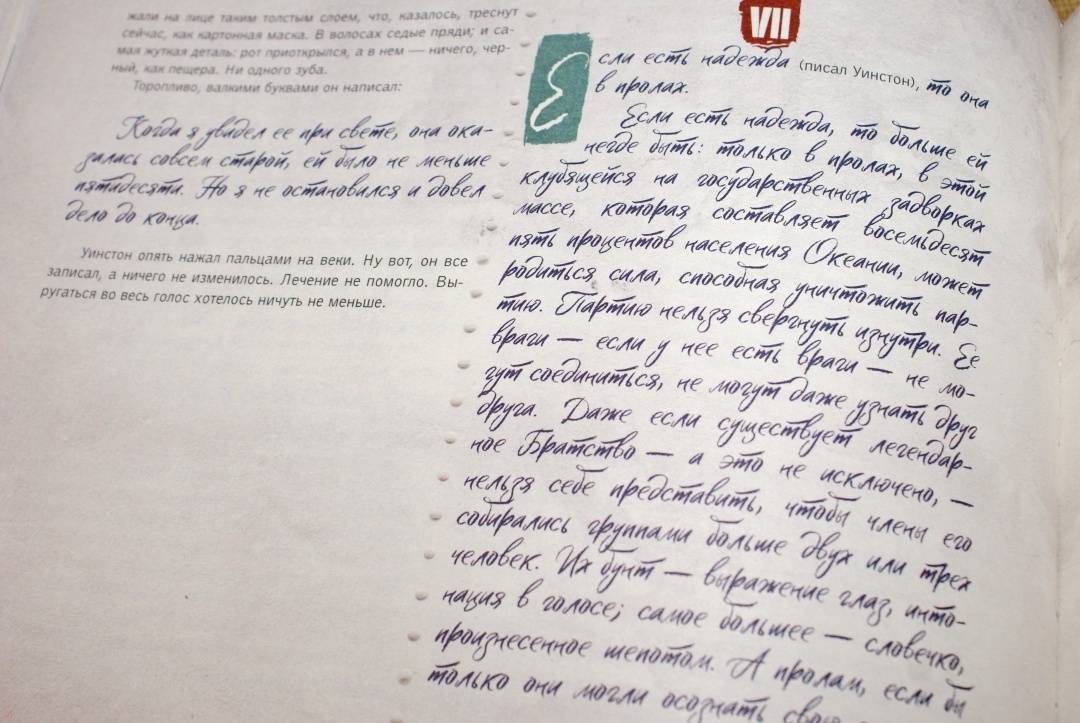 жали на лице таким толстым слоем, что, казалось, треснут
сейчас, как картонная маска. В волосах седые пряди; и са-
мая жуткая деталь: рот приоткрылся, а в нем — ничего, чер-
ный, как пещера. Ни одного зуба.
Торопливо, валкими буквами он написал:
Когда я увидел ее при свете, она ока-
залась совсем старой, ей было не меньше
пятидесяти. Но я не остановился и довел
дело до конца.
Уинстон опять нажал пальцами на веки. Ну вот, он все
записал, а ничего не изменилось. Лечение не помогло. Вы-
ругаться во весь голос хотелось ничуть не меньше.
VII
Если есть надежда (писал Уинстон), то она
в пролах.
Если есть надежда, то больше ей
негде быть: только в пролах, в этой
клубящейся на государственных задворках
массе, которая составляет восемьдесят
пять процентов населения Океании, может
родиться сила, способная уничтожить пар-
тию. Партию нельзя свергнуть изнутри. Ее
враги — если у нее есть враги — не мо-
гут соединиться, не могут даже узнать друг
друга. Даже если существует легендар-
ное Братство — а это не исключено, —
нельзя себе представить, чтобы члены его
собирались группами больше двух или трех
человек. Их бунт — выражение глаз, инто-
нация в голосе; самое большее — словечко,
произнесенное шепотом. А пролам, если бы
только они могли осознать свою